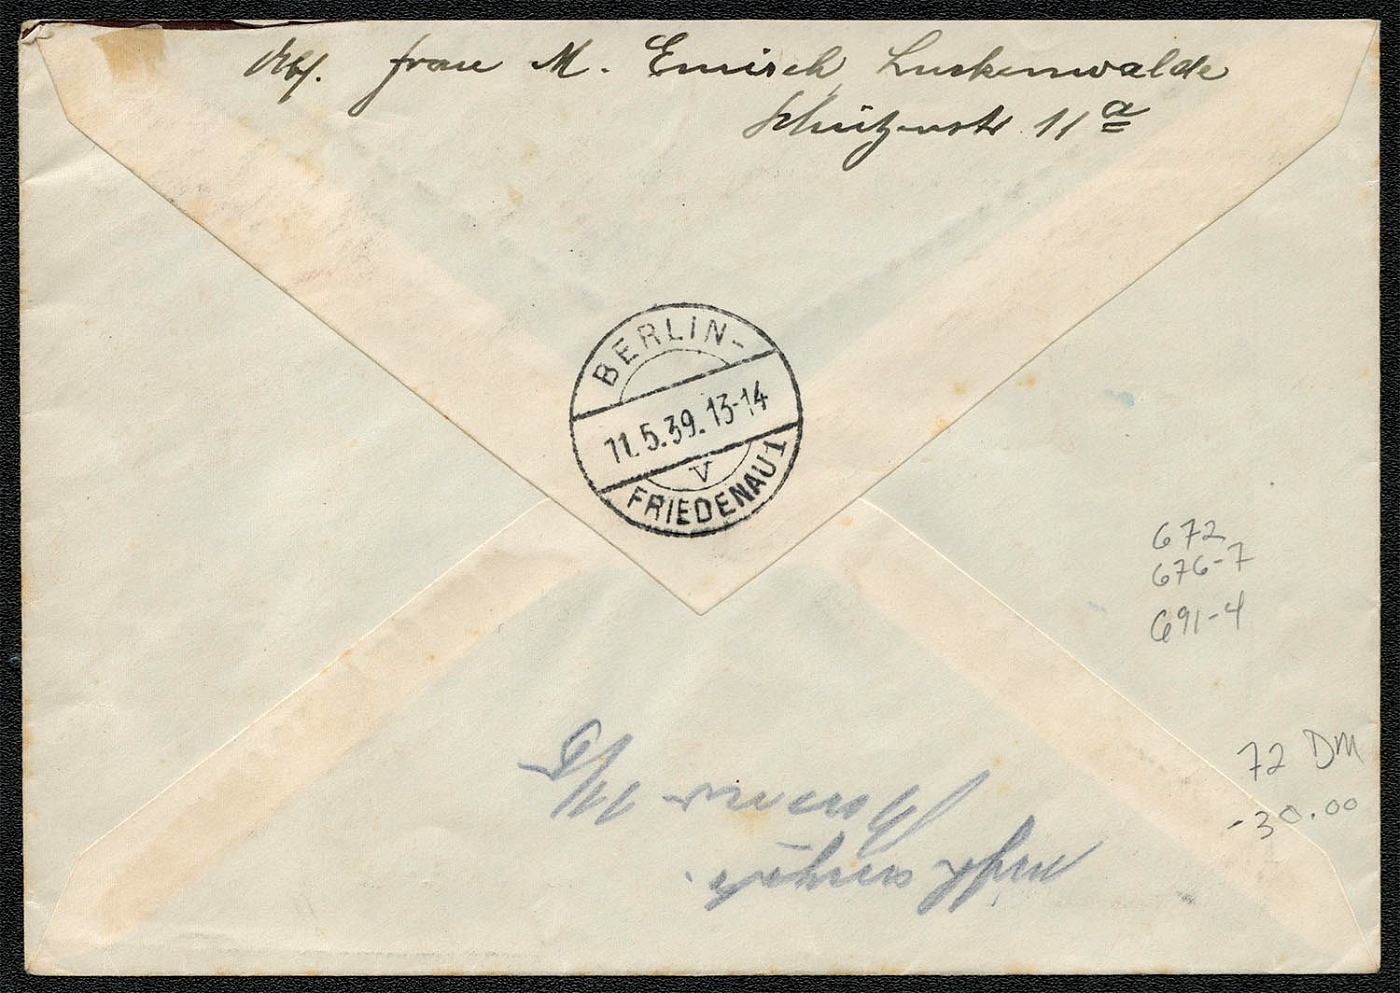 Abs. Frau M. Emisch, Luckenwalde
Schützenstr 11a
BERLIN-
11.5.39.13-14
V
FRIEDENAU 1
672
676-7
691-4
72 DM
-30.00